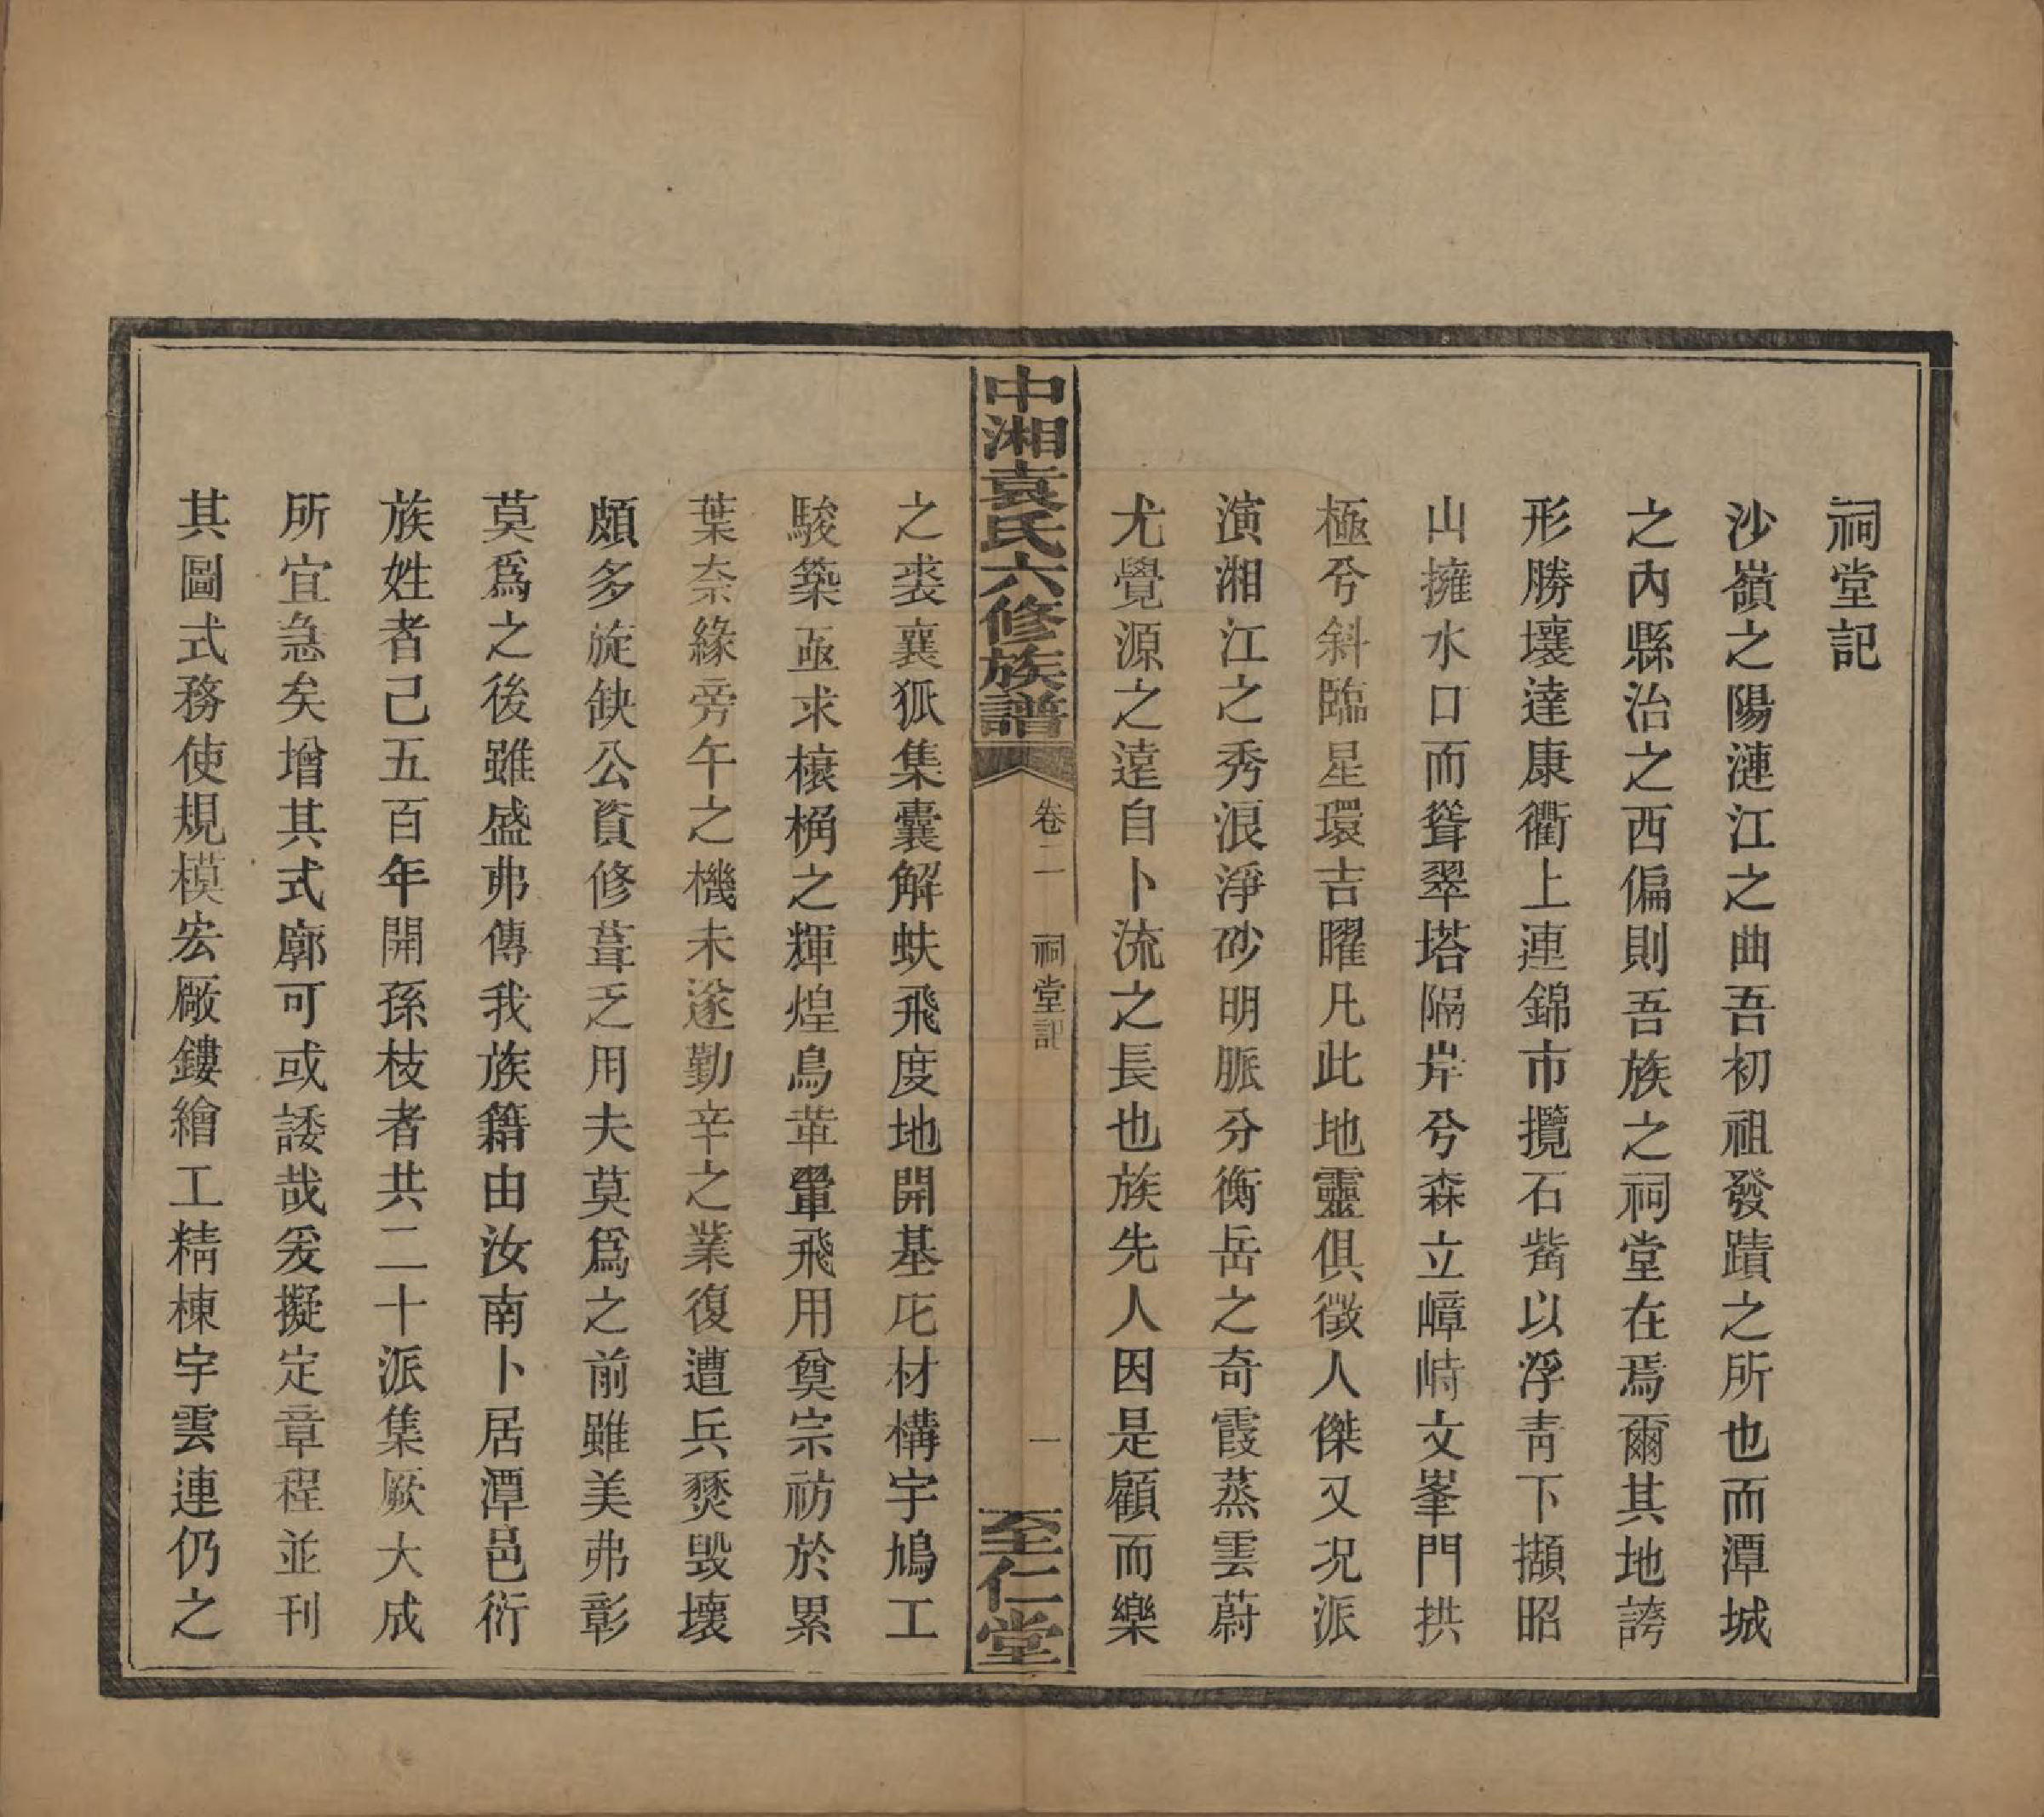 祠堂記
沙嶺之陽漣江之曲吾初祖發蹟之所也而潭城
之內縣治之西偏則吾族之祠堂在焉爾其地誇
形勝壤達康衢上連錦市攬石觜以浮青下擷昭
山擁水口而聳翠塔隔岸兮森立嶂峙文峯門拱
極兮斜臨星環吉曜凡此地靈俱徵人傑又况派
演湘江之秀浪淨砂明脈分衡岳之奇霞蒸雲蔚
尤覺源之遠自卜流之長也族先人因是顧而樂
中湘袁氏六修族譜
卷二
祠堂記
一
至仁堂
之裘襄狐集囊解蚨飛度地開基庀材構宇鳩工
駿築亟求榱桷之輝煌鳥革翬飛用奠宗祊於累
葉奈緣旁午之機未遂勤辛之業復遭兵燹毀壞
頗多旋缺公資修葺乏用夫莫爲之前雖美弗彰
莫爲之後雖盛弗傳我族籍由汝南卜居潭邑衍
族姓者己五百年開孫枝者共二十派集厥大成
所宜急矣增其式廓可或諉哉爰擬定章程並刊
其圖式務使規模宏厰鏤繪工精棟宇雲連仍之